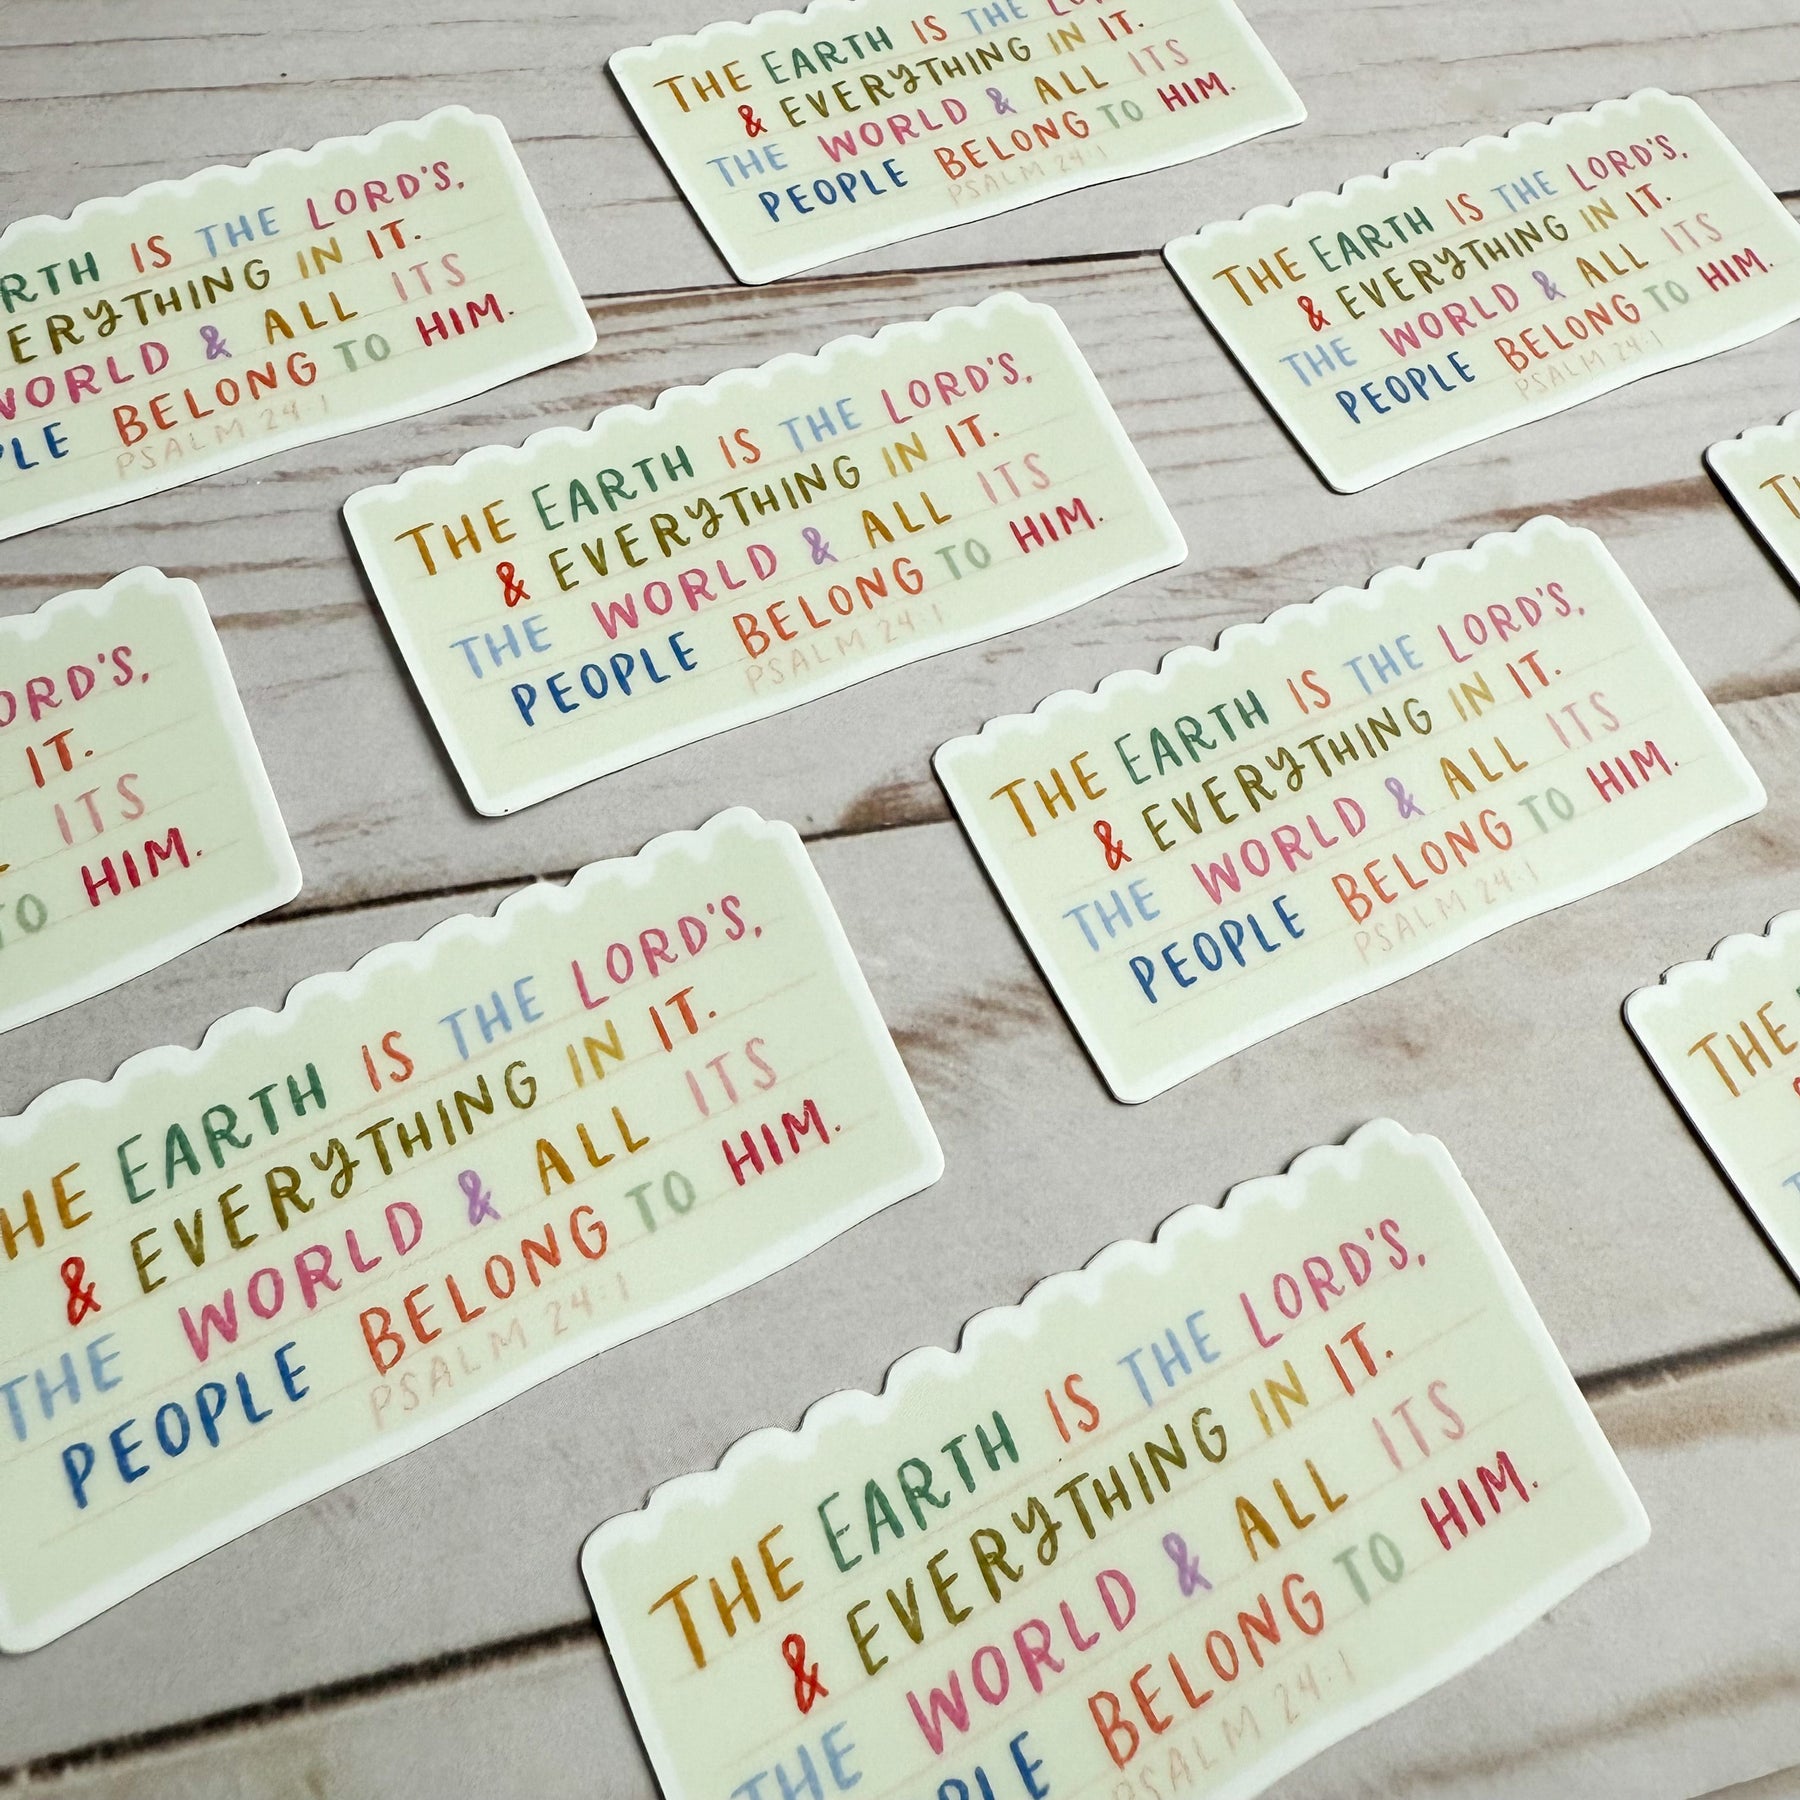 THE EARTH IS THE LO
& EVERYTHING IN IT.
THE WORLD & ALL ITS
PEOPLE BELONG TO HIM.
PSALM 24:1
RTH IS THE LORD'S,
ERYTHING IN IT.
WORLD & ALL ITS
PLE BELONG TO HIM.
PSALM 24:1
THE EARTH IS THE LORD'S,
& EVERYTHING IN IT.
THE WORLD & ALL ITS
PEOPLE BELONG TO HIM.
PSALM 24:1
THE EARTH IS THE LORD'S,
& EVERYTHING IN IT.
THE WORLD & ALL ITS
PEOPLE BELONG TO HIM.
PSALM 24:1
ORD'S,
IT.
ITS
TO HIM.
THE EARTH IS THE LORD'S,
& EVERYTHING IN IT.
THE WORLD & ALL ITS
PEOPLE BELONG TO HIM.
PSALM 24:1
HE EARTH IS THE LORD'S,
& EVERYTHING IN IT.
THE WORLD & ALL ITS
PEOPLE BELONG TO HIM.
PSALM 24:1
THE
THE EARTH IS THE LORD'S,
& EVERYTHING IN IT.
THE WORLD & ALL ITS
PLE BELONG TO HIM.
PSALM 24:1